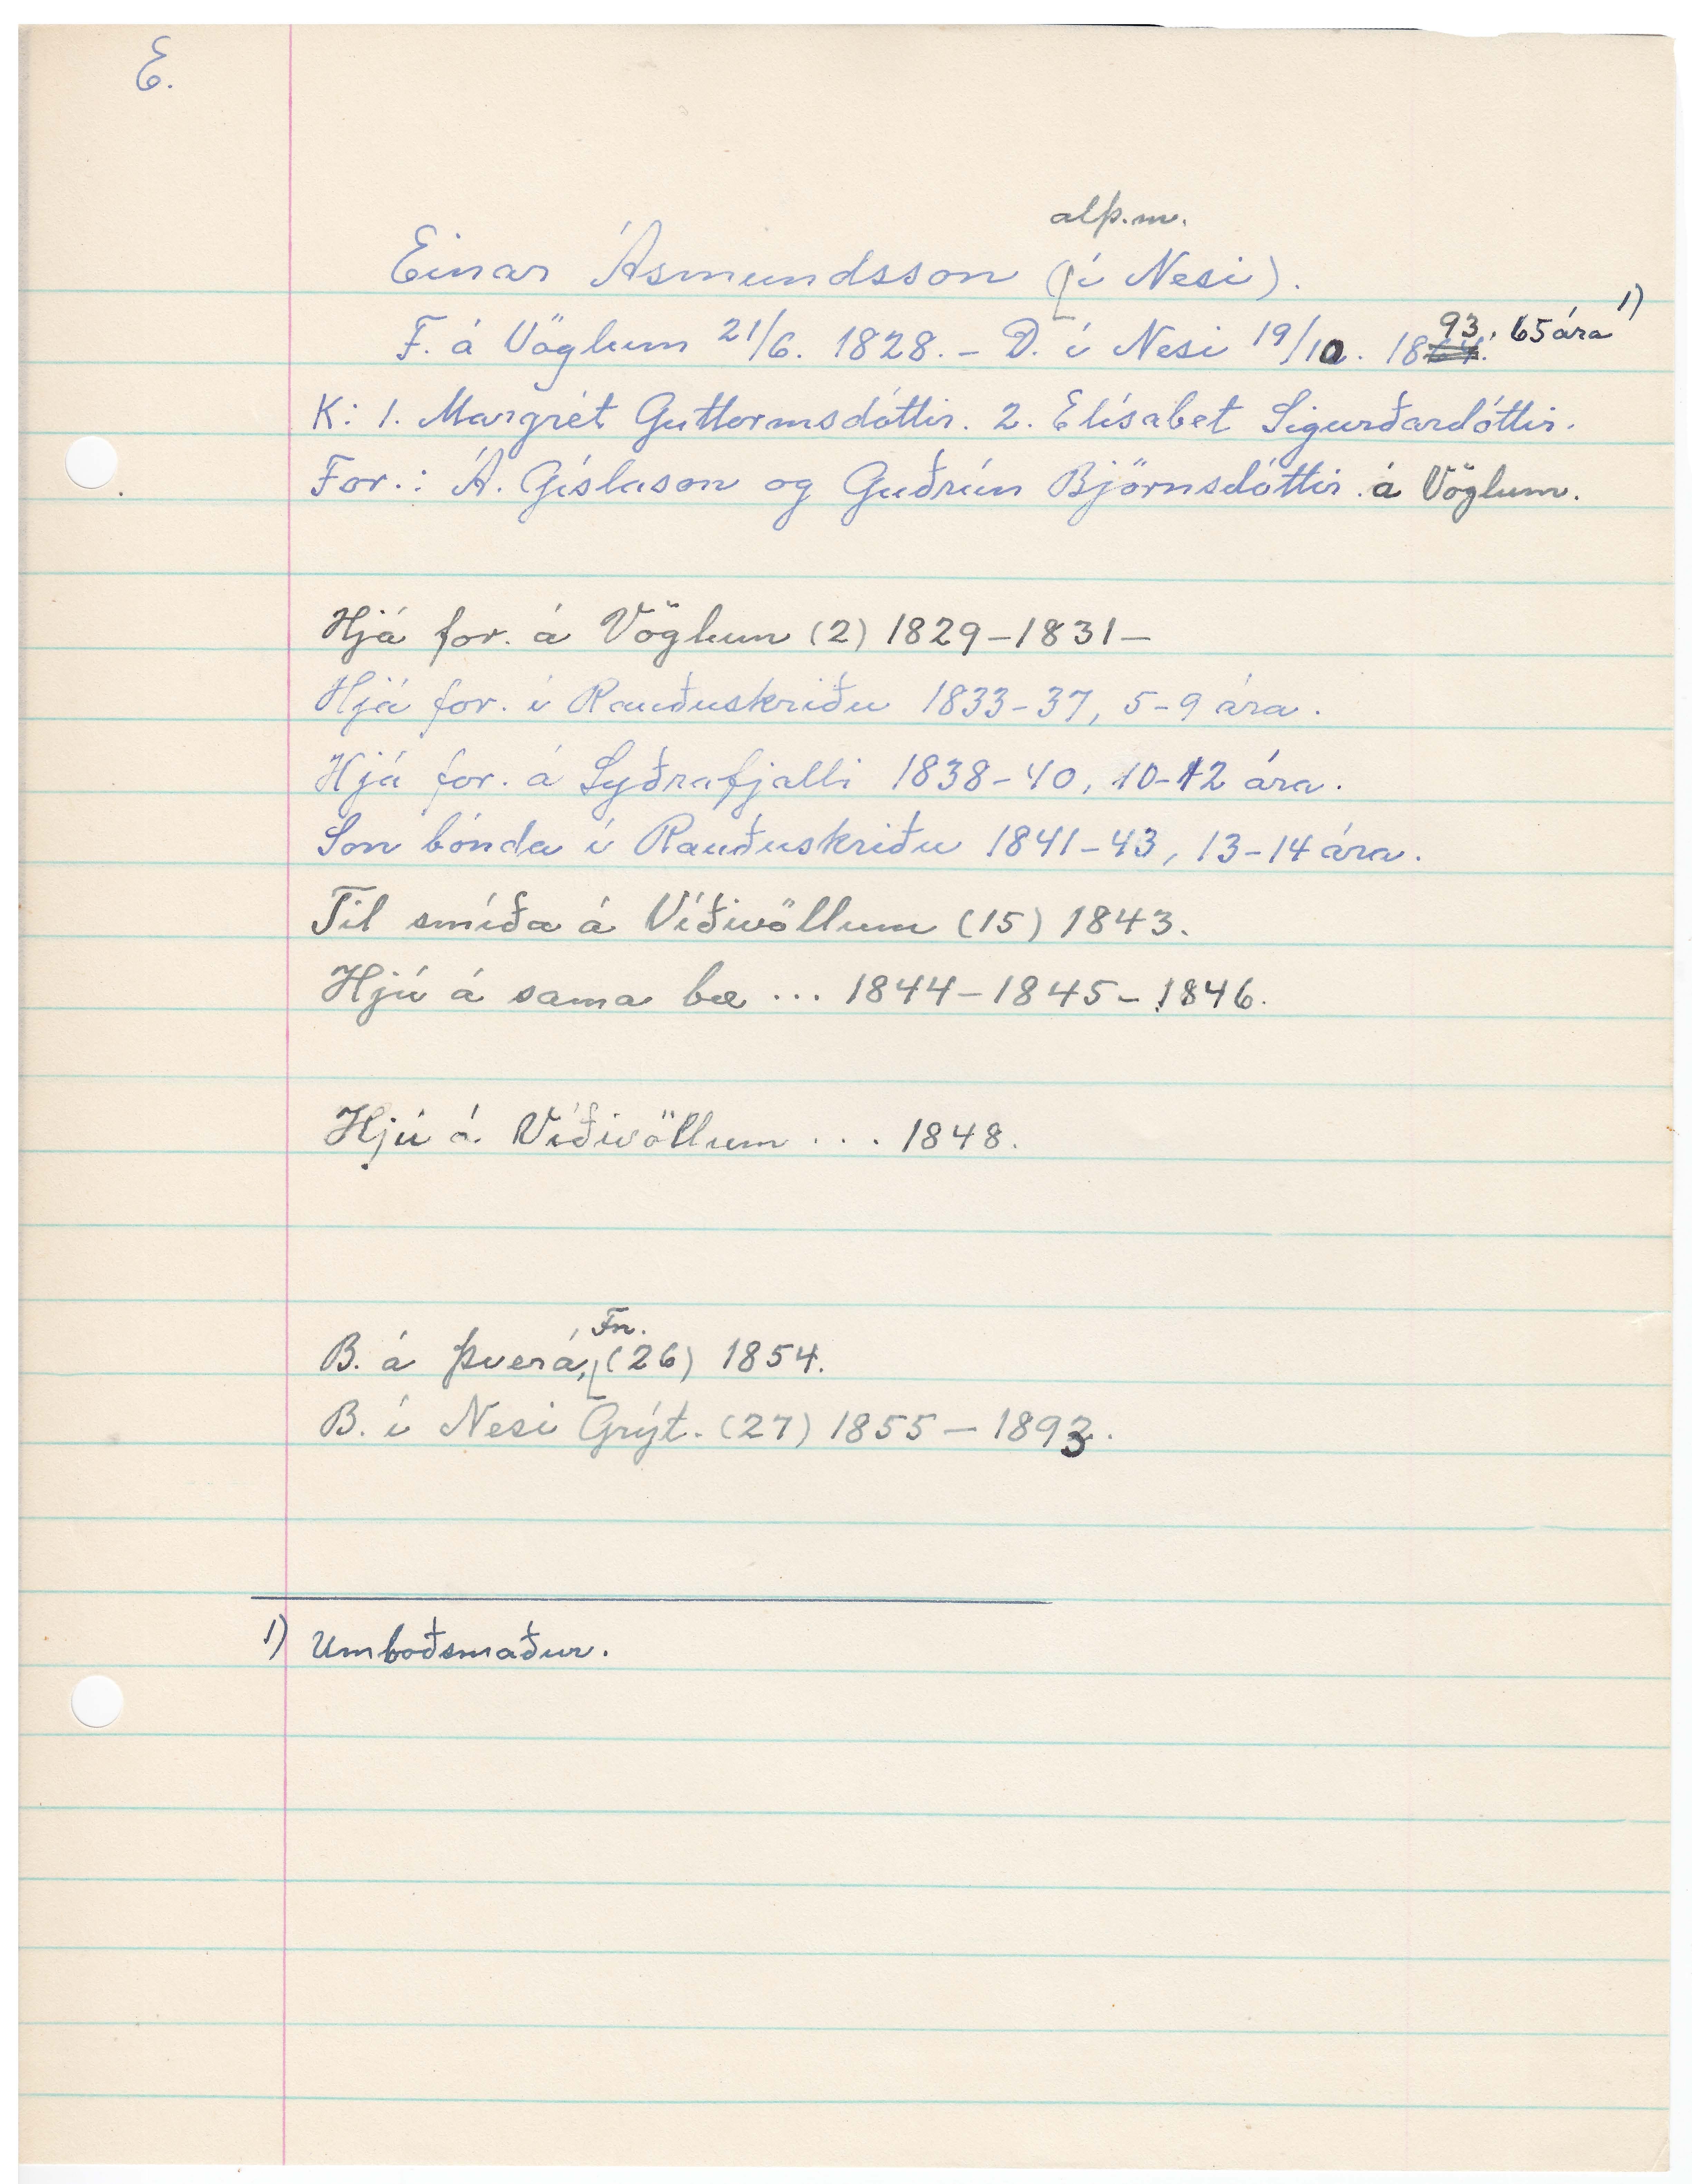 E.
alþ.m.
Einar Ásmundsson (í Nesi).
F. á Vöglum 21/6. 1828. – D. í Nesi 19/10. 1893. 65 ára 1)
K: 1. Margrét Guttormsdóttir. 2. Elísabet Sigurðardóttir.
For.: Á. Gíslason og Guðrún Björnsdóttir á Vöglum.
Hjá for. á Vöglum (2) 1829–1831–
Hjá for. í Rauðuskriðu 1833–37, 5–9 ára.
Hjá for. á Syðrafjalli 1838–40, 10–12 ára.
Son bónda í Rauðuskriðu 1841–43, 13–14 ára.
Til smíða á Víðivöllum (15) 1843.
Hjú á sama bæ ... 1844–1845–1846.
Hjú á Víðivöllum ... 1848.
Fn.
B. á Þverá, (26) 1854.
B. í Nesi Grýt. (27) 1855 – 1893.
1) Umboðsmaður.